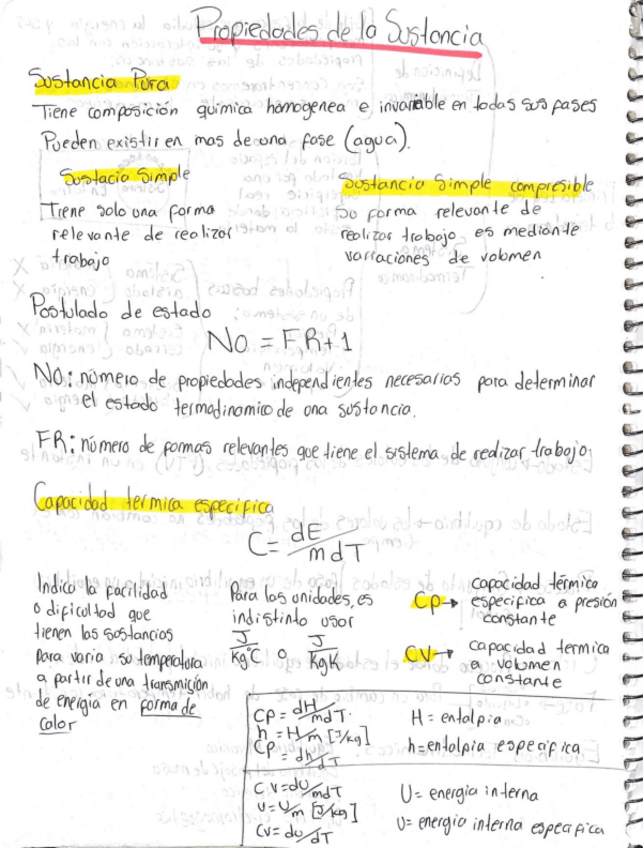 Propiedades de la Sustancia
Sustancia Pura
Tiene composición quimica homogenea e invariable en todas sus fases
Pueden existir en mas de una fase (agua).
Sustacia Simple
Tiene solo una forma
relevante de realizar
trabajo
Sustancia Simple compresible
Su forma relevante de
realizar trabajo es mediante
variaciones de volumen
Postulado de estado
NO = FR+1
NO: número de propiedades independientes necesarias para determinar
el estado termodinamico de una sustancia.
FR: número de formas relevantes que tiene el sistema de realizar trabajo
Capacidad termica especifica
C = dE/mdT
Indica la facilidad
o dificultad que
tienen las sustancias
para variar su temperatura
a partir de una transmisión
de energia en forma de
calor
Para las unidades, es
indistinto usar
J/Kg°C o J/KgK
Cp → capacidad térmica
especifica a presión
constante
CV → capacidad termica
a volumen
constante
CP = dH/mdT
h = H/m [J/kg]
CP = dh/dT
H = entalpia
h = entalpia especifica
CV = dU/mdT
u = U/m [J/kg]
CV = du/dT
U = energia interna
u = energia interna especifica